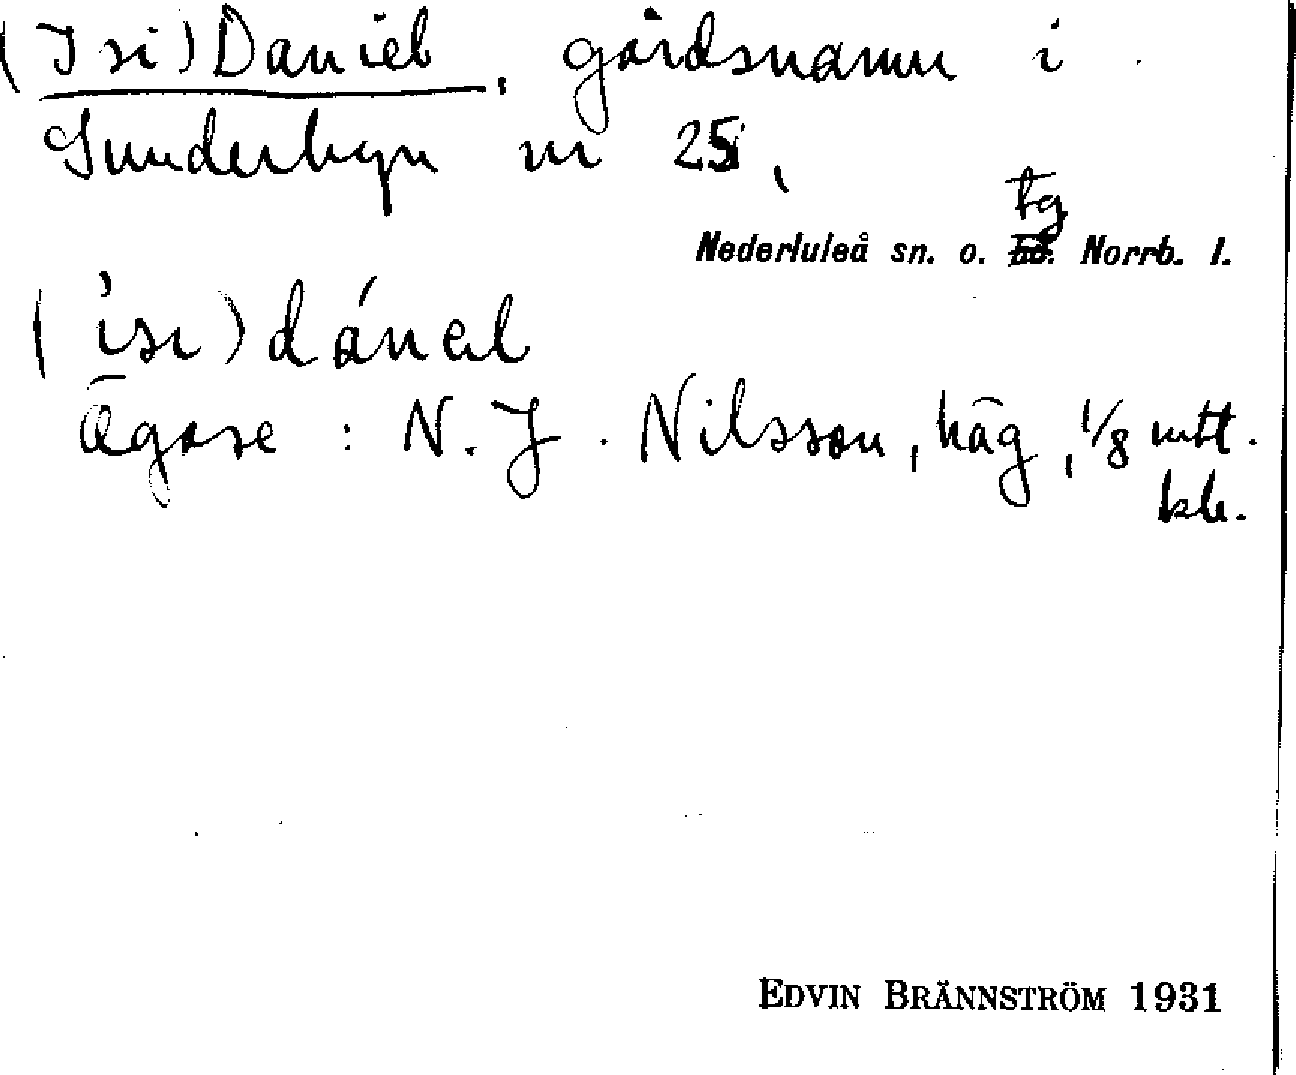 (Isi)Daniel, gårdsnamn i
Sunderbyn nr 25,
tg
Nederluleå sn. o. hd. Norrb. l.
(ìsi)dánel
Ägare : N. J. Nilsson, häg, 1/8 mtl.
kr.
EDVIN BRÄNNSTRÖM 1931